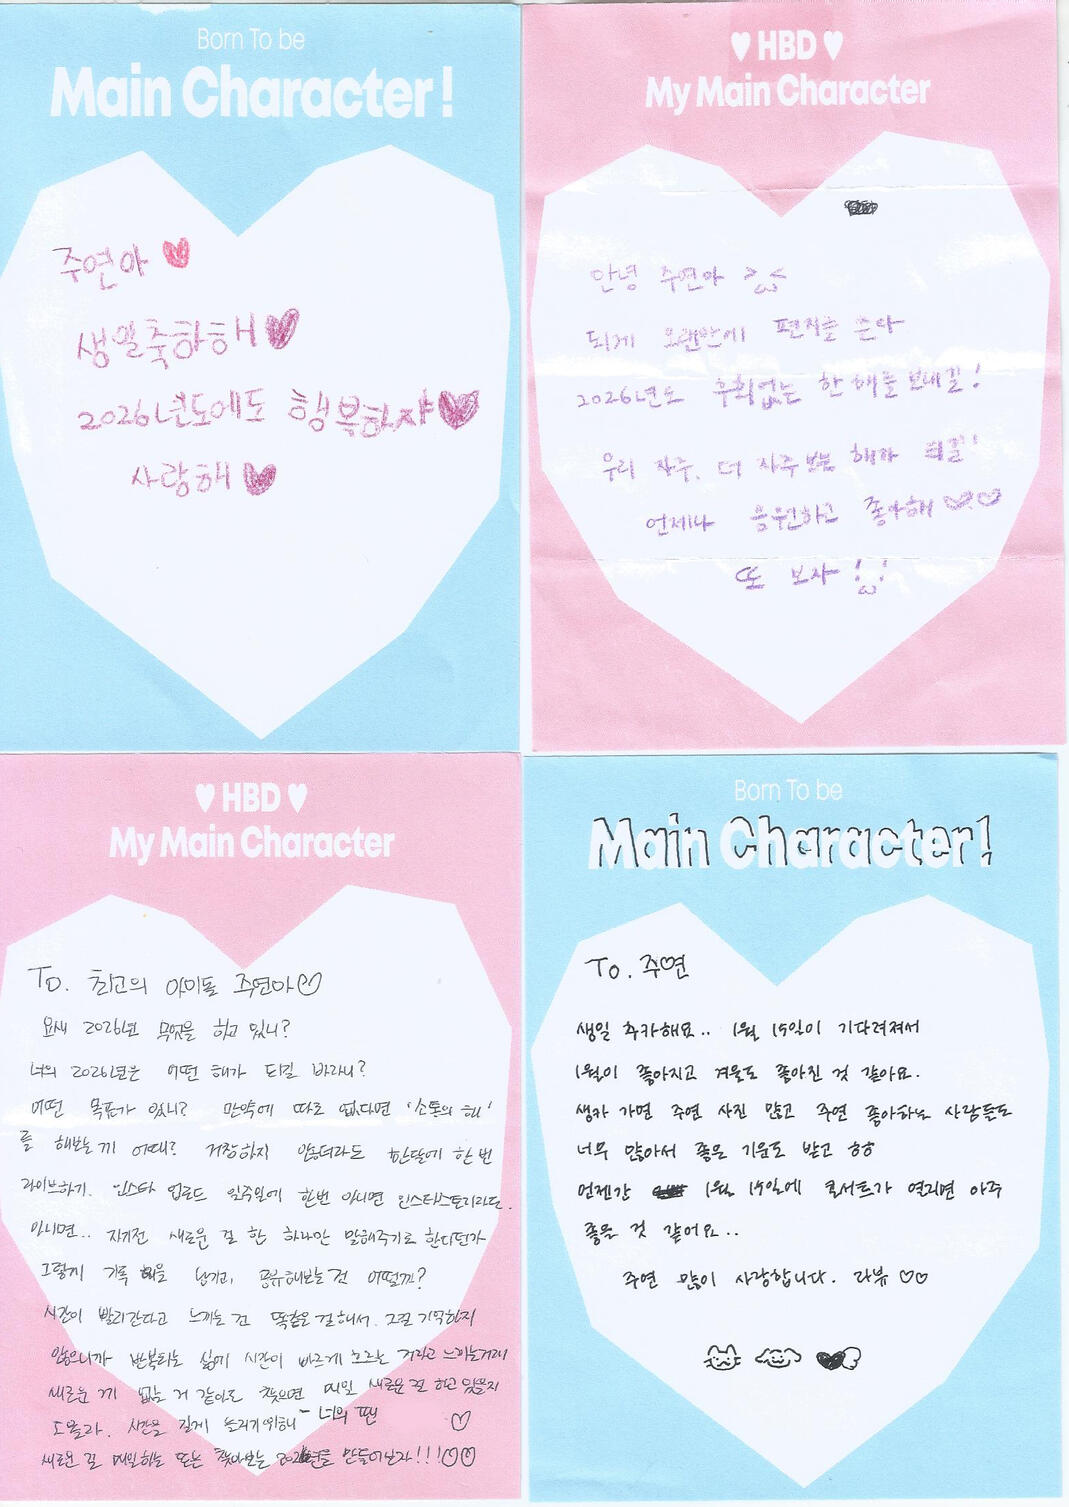 Born To be
Main Character!
주연아
생일축하해
2026년도에도 행복하자
사랑해
♥ HBD ♥
My Main Character
안녕 주연아
되게 오랜만에 편지를 쓴다
2026년도 후회없는 한 해를 보내길!
우리 자주, 더 자주 보는 해가 되길!
언제나 응원하고 좋아해♡♡
또 보자
♥ HBD ♥
My Main Character
To. 최고의 아이돌 주연아♡
요새 2026년 무엇을 하고 있니?
너의 2026년은 어떤 해가 되길 바라니?
어떤 목표가 있니? 만약에 따로 없다면 '소통의 해'
를 해보는게 어때? 거창하지 않더라도 한달에 한번
라이브하기. 인스타 업로드 일주일에 한번 아니면 인스타스토리라도.
아니면.. 자기전 새로운 걸 한 하나만 말해주기로 한다던가
그렇게 기록 남기고, 공유해보는 건 어떨까?
시간이 빨리간다고 느끼는 건 똑같은걸해서. 그걸 기억하지
않으니까 반복되는 삶에 시간이 빠르게 흐르는 거라고 느끼는거래
새로운 게 없는 거 같아도 찾으면 매일 새로운 걸 하고 있을지
도 몰라. 시간을 길게 늘리기위해 - 너의 팬 ♡
새로운 걸 매일하는 또는 찾아보는 만들어보자!!!♡♡
Born To be
Main Character!
To. 주연
생일 추카해요.. 1월 15일이 기다려져서
1월이 좋아지고 겨울도 좋아진 것 같아요.
생카 가면 주연 사진 많고 주연 좋아하는 사람들도
너무 많아서 좋은 기운도 받고 ㅎㅎ
언젠간 1월 15일에 콘서트가 열리면 아주
좋을 것 같어요..
주연 많이 사랑합니다. 라뷰 ♡♡